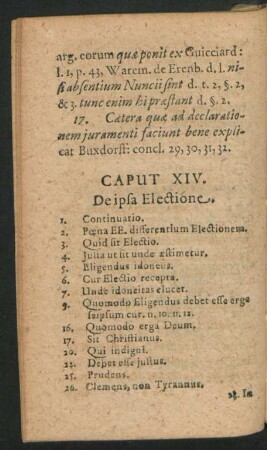 arg. eorum quæ ponit ex Guicciard:
l. 1, p. 43, Warem. de Erenb. d. l. ni-
si absentium Nuncii sint d. t. 2, §. 2,
& 3. tunc enim hi præstant d. §. 2.
17. Cætera quæ ad declaratio-
nem juramenti faciunt bene expli-
cat Buxdorff: concl. 29, 30, 31, 32.
CAPUT XIV.
De ipsa Electione.
1. Continuatio.
2. Pœna EE. differentium Electionem.
3. Quid sit Electio.
4. Justa ut sit unde æstimetur.
5. Eligendus idoneus.
6. Cur Electio recepta.
7. Unde idoneitas elucet.
9. Quomodo Eligendus debet esse erga
seipsum cur. n. 10. 11. 12.
16. Quomodo erga Deum.
17. Sit Christianus.
20. Qui indigni.
22. Debet esse justus.
25. Prudens.
26. Clemens, non Tyrannus.